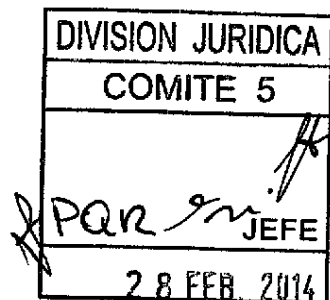 DIVISION JURIDICA
COMITE 5
PQR
JEFE
28 FEB. 2014